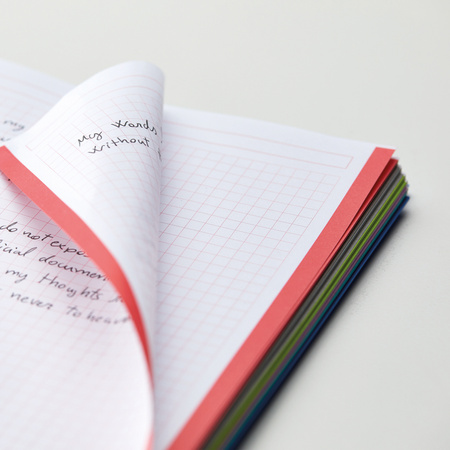 My words
without
do not expo
icial documen
my thoughts
never to hear